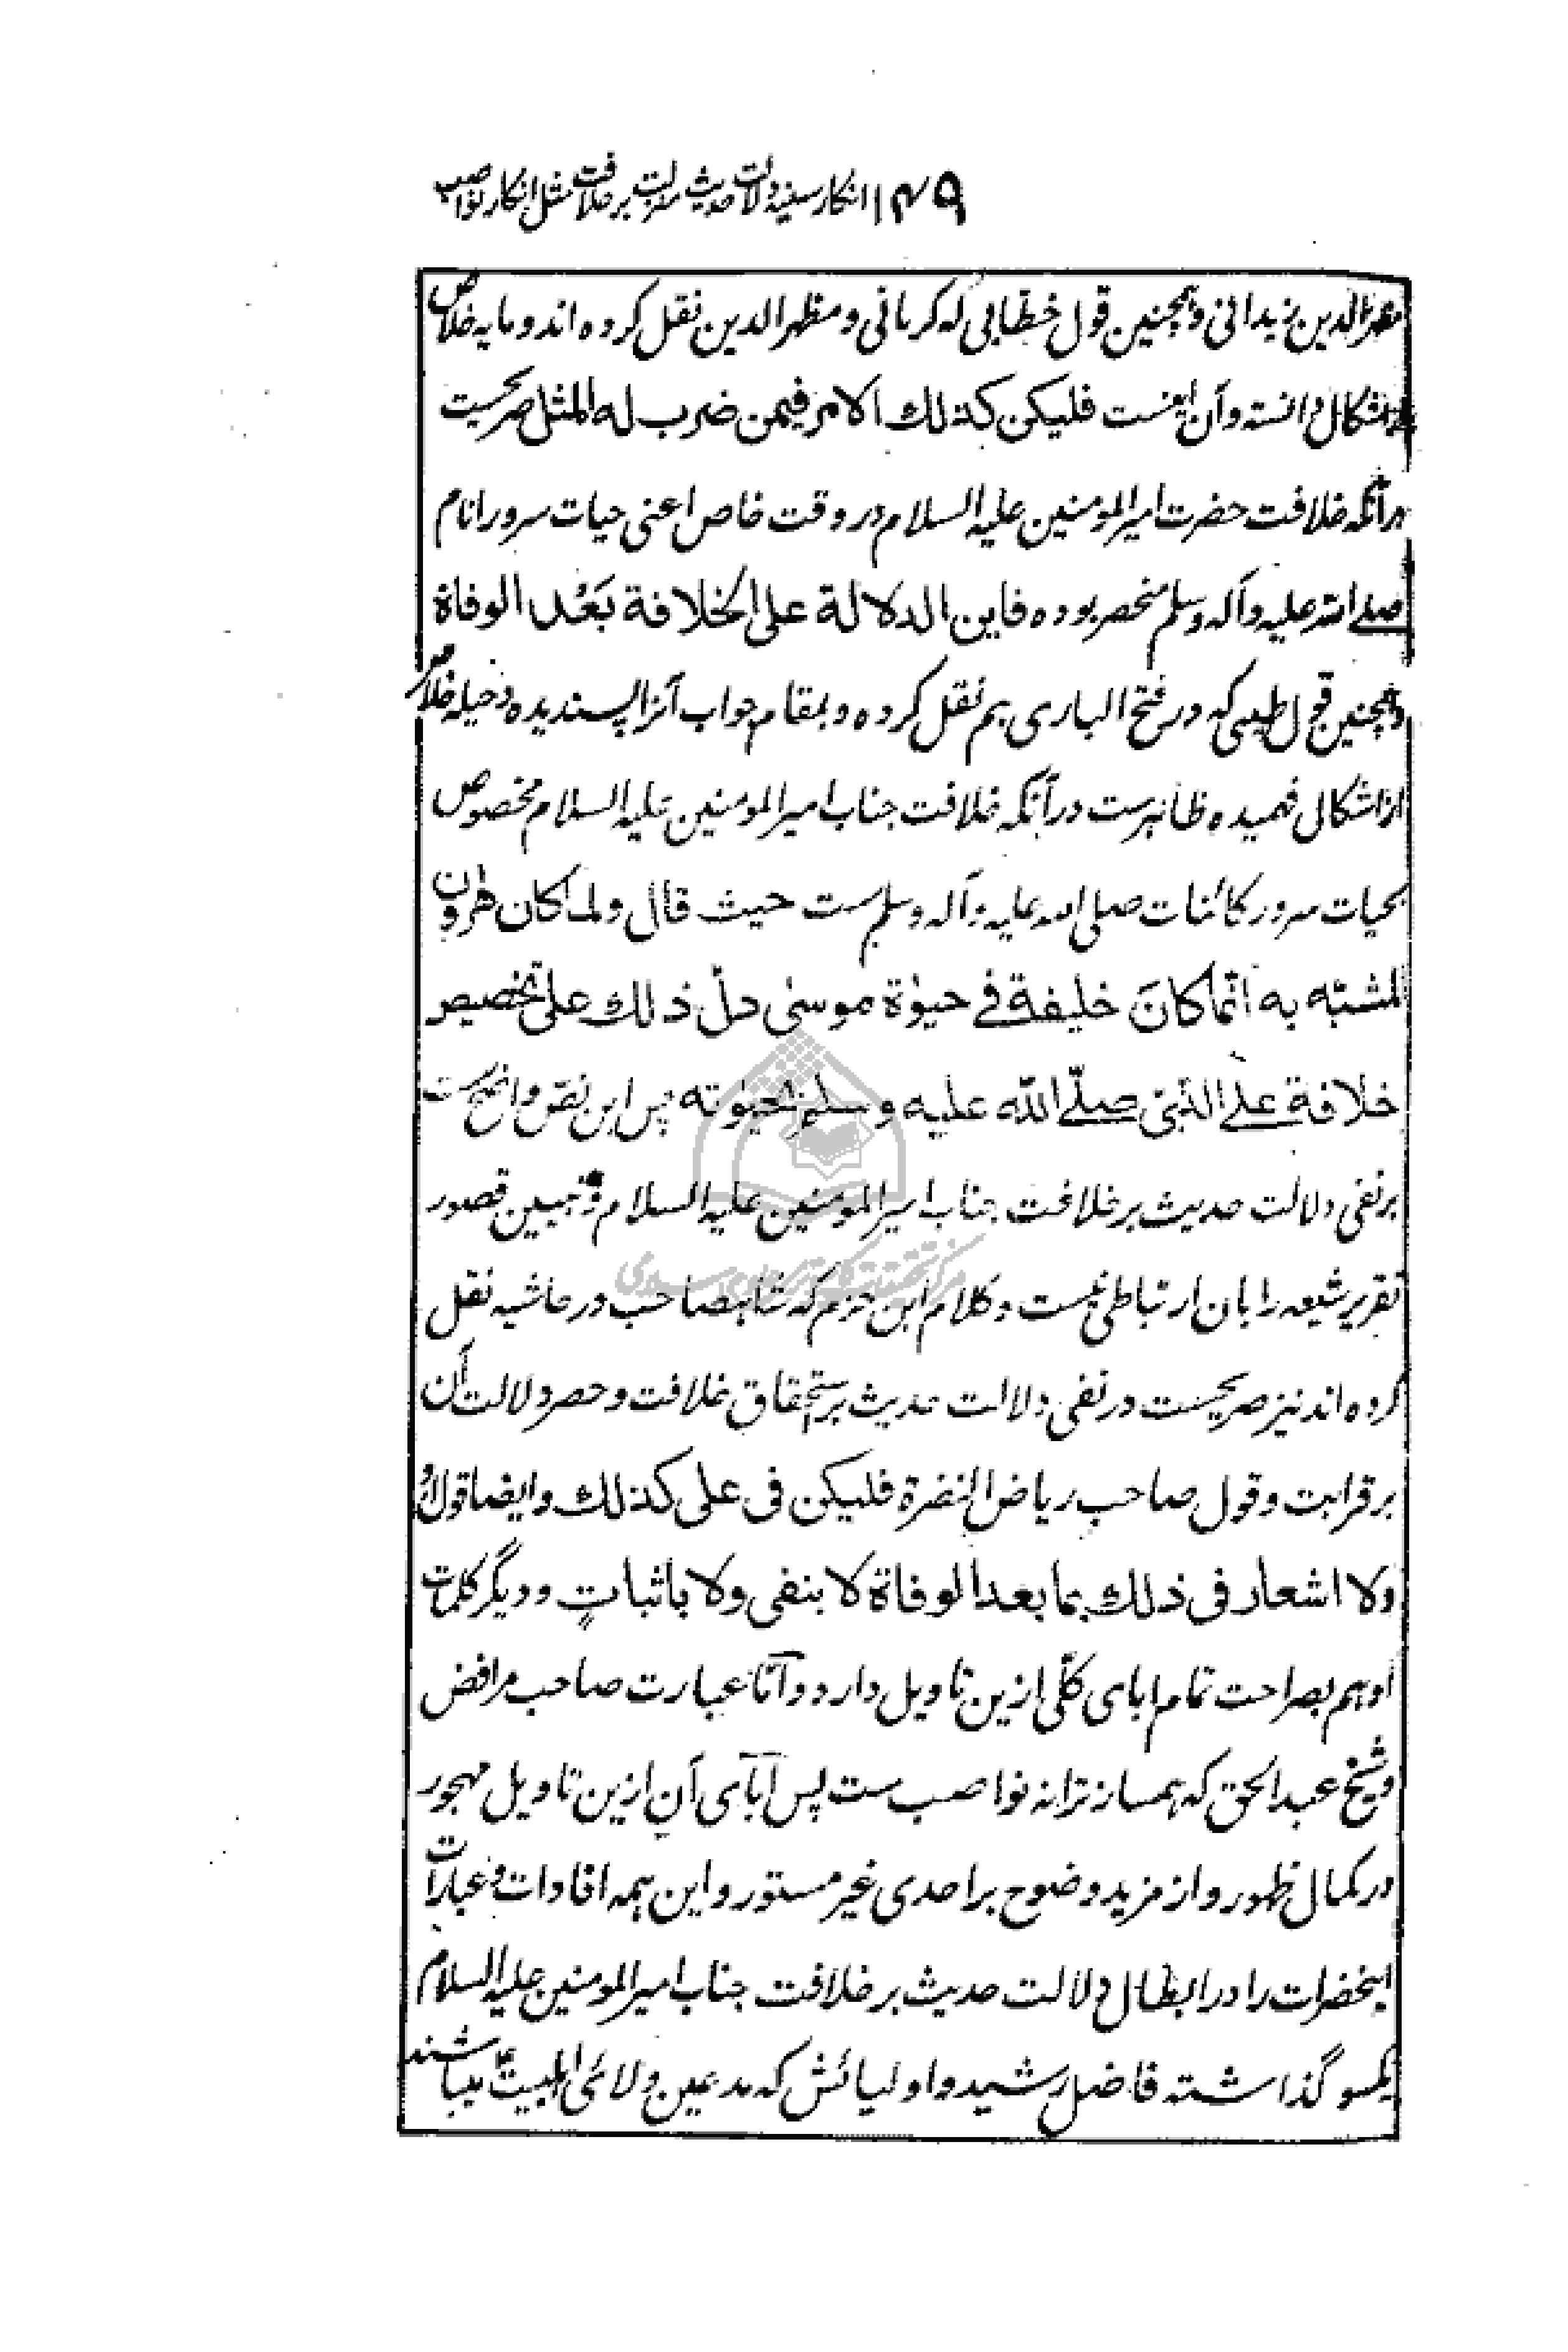 ۱۴۹ انکار سنیه دلالت حدیث منزلت بر خلافت مثل انکار نواصب
مظهرالدین زیدانی و همچنین قول خطابی که کرمانی و مظهرالدین نقل کرده اند و مایه خلاص
از اشکال دانسته و آن اینست فلیکن کذلك الامر فیمن ضرب له المثل صریحست
برآنکه خلافت حضرت امیرالمومنین علیه السلام در وقت خاص اعنی حیات سرور انام
صلے الله علیه وآله وسلم منحصر بوده فاین الدلالة علی الخلافة بَعْد الوفاة
و همچنین قول طیبی که در فتح الباری هم نقل کرده و بمقام جواب آنرا پسندیده و حیله خلاص
از اشکال فهمیده ظاهرست در آنکه خلافت جناب امیرالمومنین علیه السلام مخصوص
بحیات سرور کائنات صلی الله علیه وآله وسلم ست حیث قال ولما کان هرون
المشبّه به انّما کانَ خلیفة فے حیوٰة موسیٰ دلّ ذلك علی تخصیص
خلافة علے للنّبی صلّے اللّه علیه وسلم بحیوٰته پس این نص واضح ست
بر نفی دلالت حدیث بر خلافت جناب امیرالمومنین علیه السلام و تبیین قصور
تقریر شیعه را بان ارتباطی نیست و کلام ابن حزم که شاهصاحب در حاشیه نقل
کرده اند نیز صریحست در نفی دلالت حدیث بر استحقاق خلافت و حصر دلالت آن
بر قرابت و قول صاحب ریاض النضرة فلیکن فی علی کذلك و ایضا قول او
ولا اشعار فی ذلك بما بعد الوفاة لا بنفی ولا باثباتٍ و دیگر کلمات
او هم بصراحت تمام ابای کلّی ازین تاویل دارد و امّا عبارت صاحب مرافض
و شیخ عبدالحق که همساز ترانه نواصب ست پس آبآی آن ازین تاویل مهجور
در کمال ظهور و از مزید وضوح بر احدی غیر مستور و این همه افادات و عبارات
اینحضرات را در ابطال دلالت حدیث بر خلافت جناب امیرالمومنین علیه السلام
یکسو گذاشته فاضل رشید و اولیائش که مدعین ولائی اهلبیتؑ میباشند
مرکز تحقیقات کامپیوتری علوم اسلامی